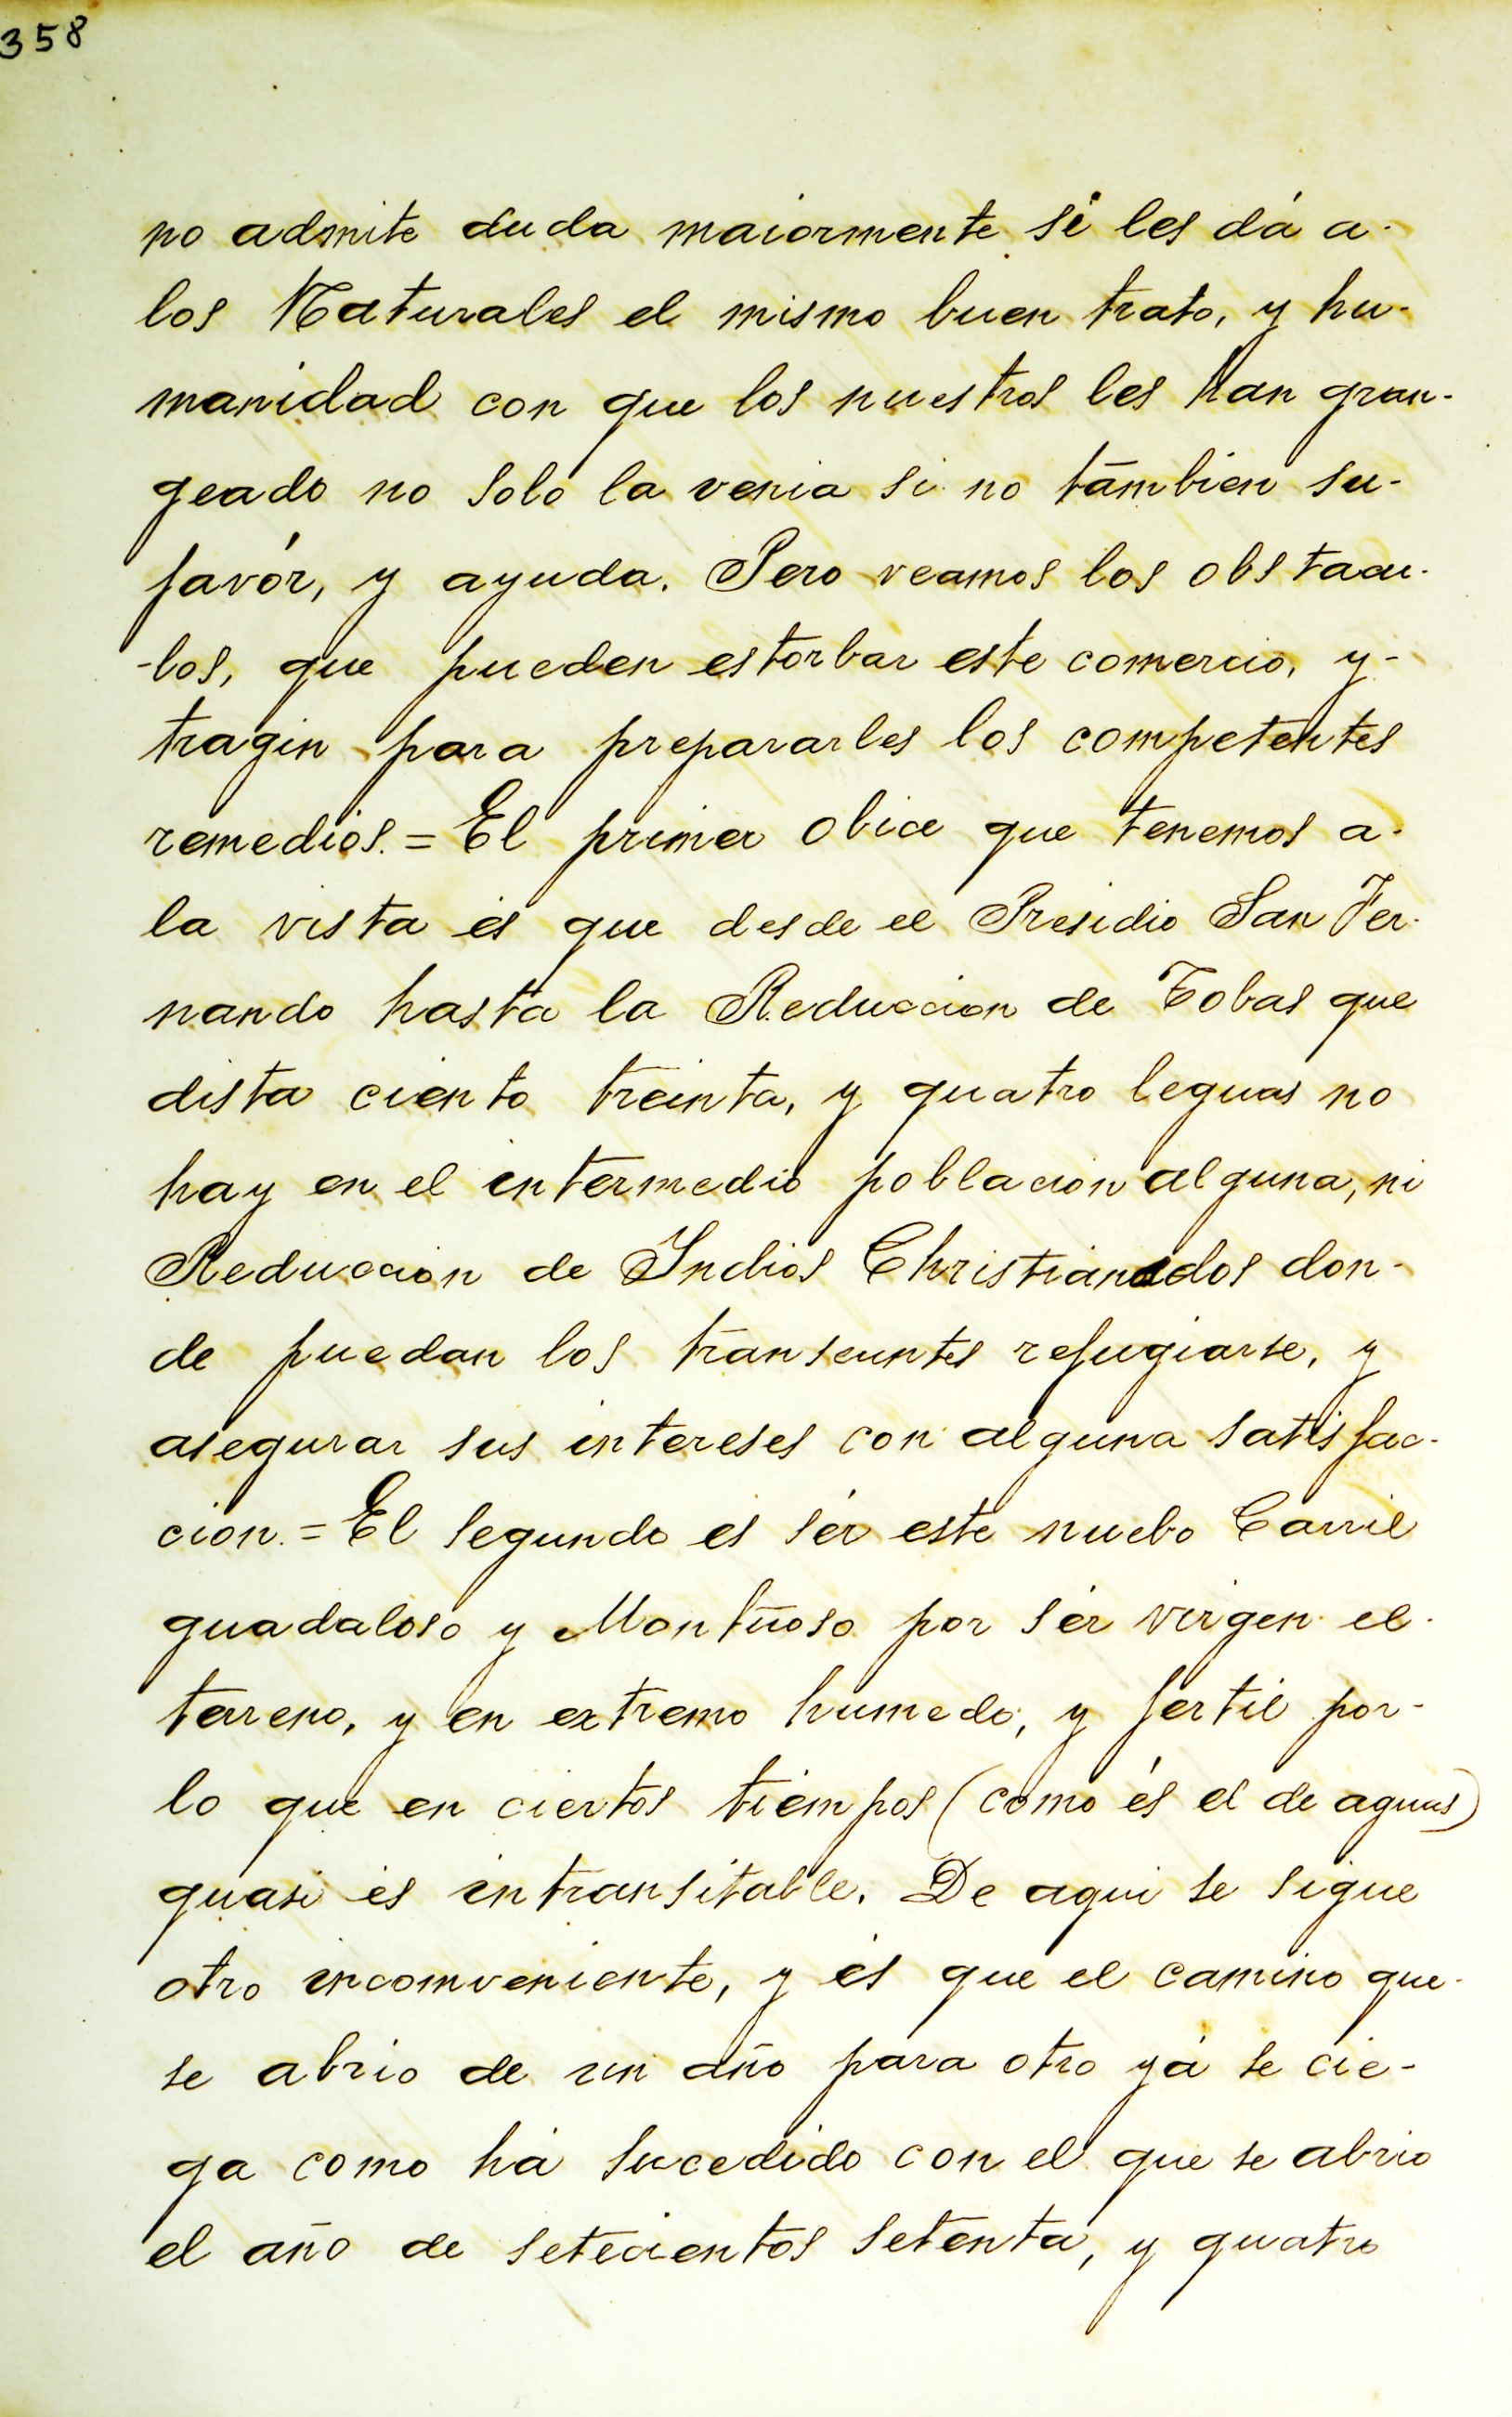 358
no admite duda maiormente si les dá a-
los Naturales el mismo buen trato, y hu-
manidad con que los nuestros les han gran-
geado no solo la venia si no tambien su-
favór, y ayuda. Pero veamos los obstacu-
-los, que pueden estorbar este comercio, y-
tragin para prepararles los competentes
remedios. = El primer obice que tenemos a-
la vista és que desde el Presidio San Fer-
nando hasta la Reduccion de Tobas que
dista ciento treinta, y quatro leguas no
hay en el intermedio poblacion alguna, ni
Reduccion de Indios Christianados don-
de puedan los transeuntes refugiarse, y
asegurar sus intereses con alguna satisfac-
cion. = El segundo es sér este nuebo Carril
guadaloso y Montuoso por sér virgen el-
terreno, y en extremo humedo, y fertil por-
lo que en ciertos tiempos (como és el de aguas)
quasi és intransitable. De aqui se sigue
otro incomveniente, y és que el camino que-
se abrio de un año para otro yá se cie-
ga como há sucedido con el que se abrio
el año de setecientos setenta, y quatro